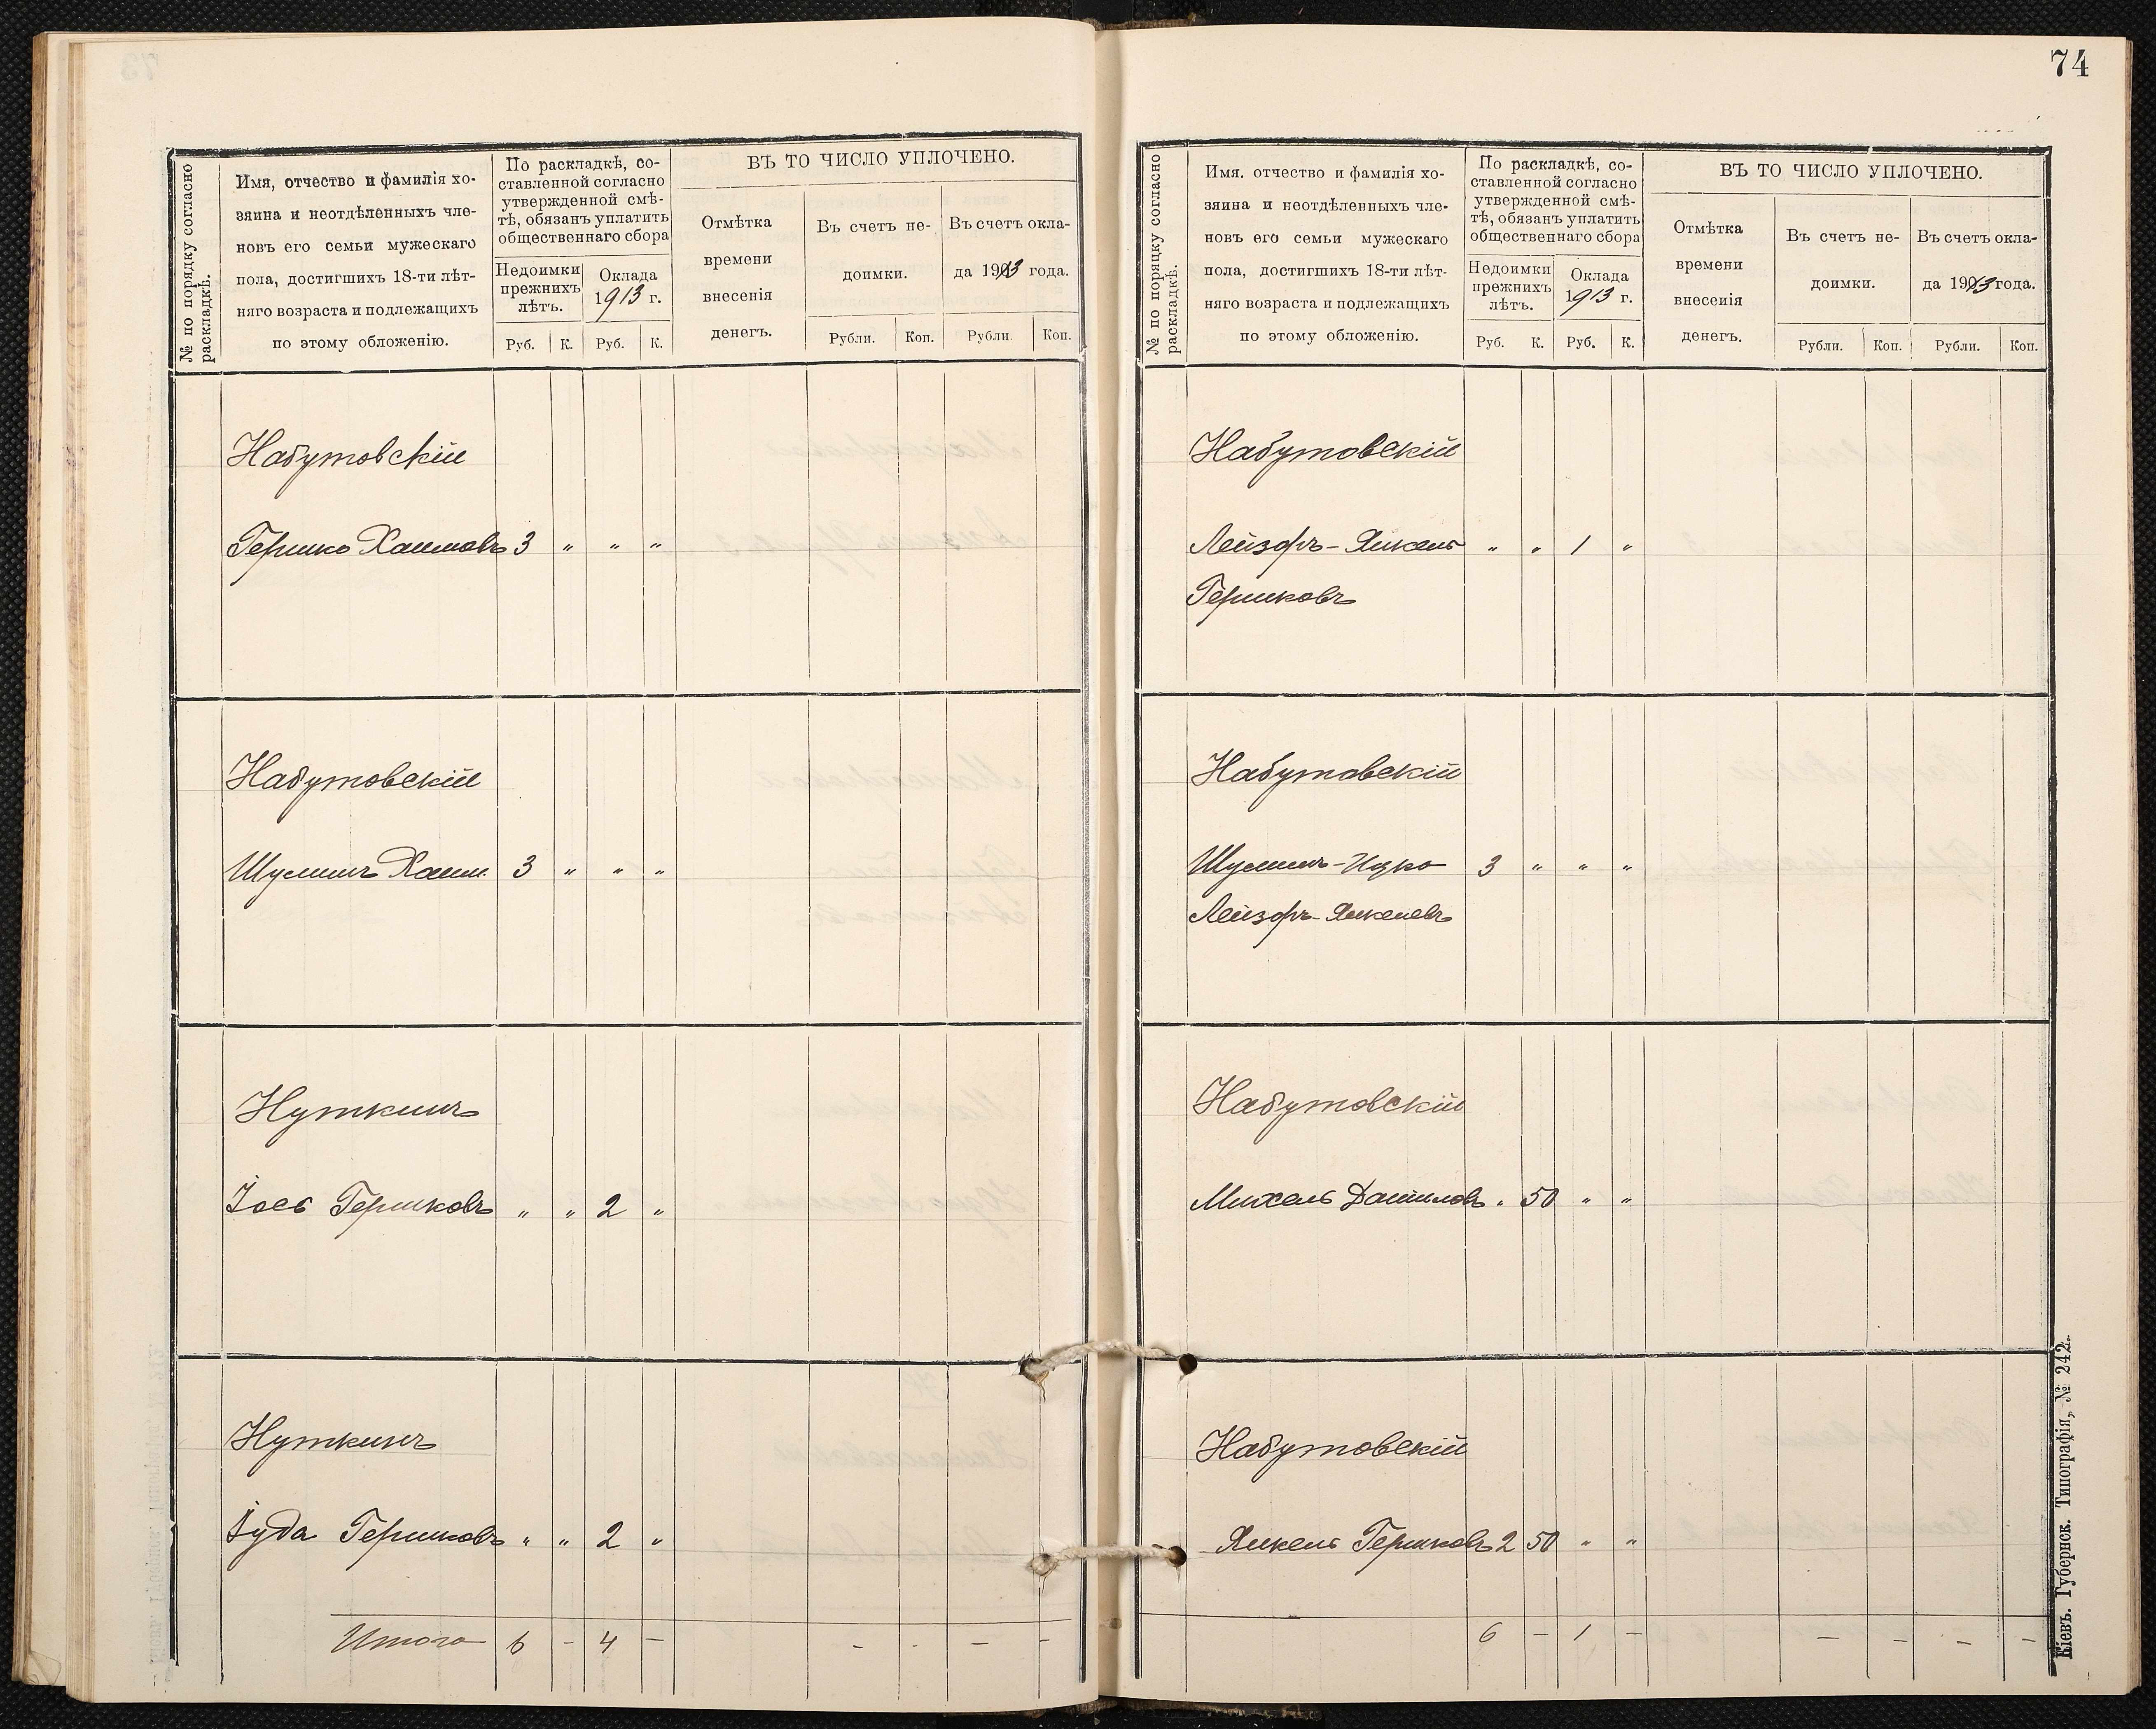 № по порядку согласно
раскладкѣ.
Имя, отчество и фамилія хо-
зяина и неотдѣленныхъ чле-
новъ его семьи мужескаго
пола, достигшихъ 18-ти лѣт-
няго возраста и подлежащихъ
по этому обложенію.
По раскладкѣ, со-
ставленной согласно
утвержденной смѣ-
тѣ, обязанъ уплатить
общественнаго сбора
Недоимки
прежнихъ
лѣтъ.
Оклада
1913 г.
Руб. К. Руб. К.
ВЪ ТО ЧИСЛО УПЛОЧЕНО.
Отмѣтка
времени
внесенія
денегъ.
Въ счетъ не-
доимки.
Въ счетъ окла-
да 1913 года.
Рубли. Коп. Рубли. Коп.
Набутовскій
Гершко Хаимовъ 3 " " "
Набутовскій
Шулимъ Хаим. 3 " " "
Нуткинъ
Іось Гершковъ " " 2 "
Нуткинъ
Іуда Гершковъ " " 2 "
Итого 6 - 4 - - - - -
74
№ по порядку согласно
раскладкѣ.
Имя. отчество и фамилія хо-
зяина и неотдѣленныхъ чле-
новъ его семьи мужескаго
пола, достигшихъ 18-ти лѣт-
няго возраста и подлежащихъ
по этому обложенію.
По раскладкѣ, со-
ставленной согласно
утвержденной смѣ-
тѣ, обязанъ уплатить
общественнаго сбора
Недоимки
прежнихъ
лѣтъ.
Оклада
1913 г.
Руб. К. Руб. К.
ВЪ ТО ЧИСЛО УПЛОЧЕНО.
Отмѣтка
времени
внесенія
денегъ.
Въ счетъ не-
доимки.
Въ счетъ окла-
да 1913 года.
Рубли. Коп. Рубли. Коп.
Набутовскій
Лейзоръ-Янкель " " 1 "
Гершковъ
Набутовскій
Шулимъ-Ицко 3 " " "
Лейзоръ-Янкелевъ
Набутовскій
Михель Даниловъ " 50 " "
Набутовскій
Янкель Гершковъ 2 50 " "
6 - 1 - - - - -
Кіевъ. Губернск. Типографія, № 242.